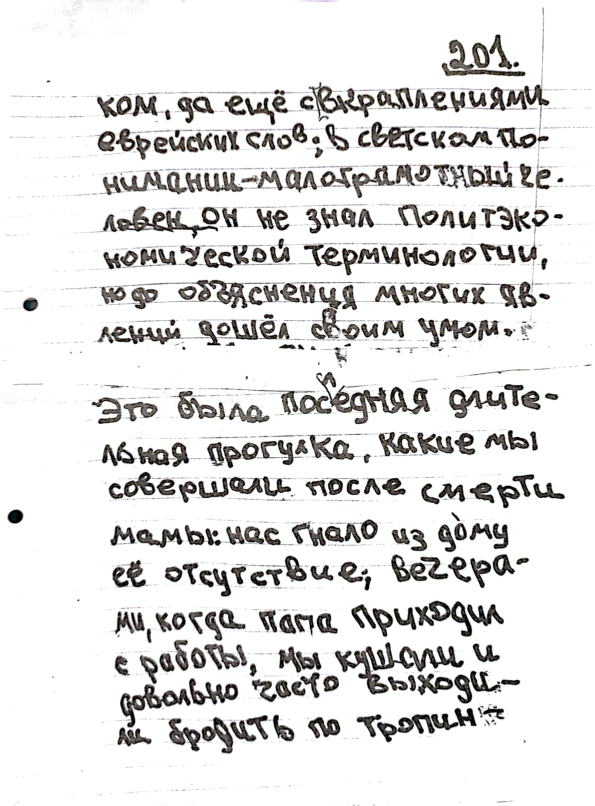 201.
ком, да ещё с вкраплениями
еврейских слов; в светском по-
нимании-малограмотный че-
ловек, Он не знал политэко-
номической терминологии,
но до объяснения многих яв-
лений дошёл своим умом.
Это была последняя длите-
льная прогулка, какие мы
совершали после смерти
мамы: нас гнало из дому
её отсутствие; вечера-
ми, когда папа приходил
с работы, мы кушали и
довольно часто выходи-
ли бродить по тропин-